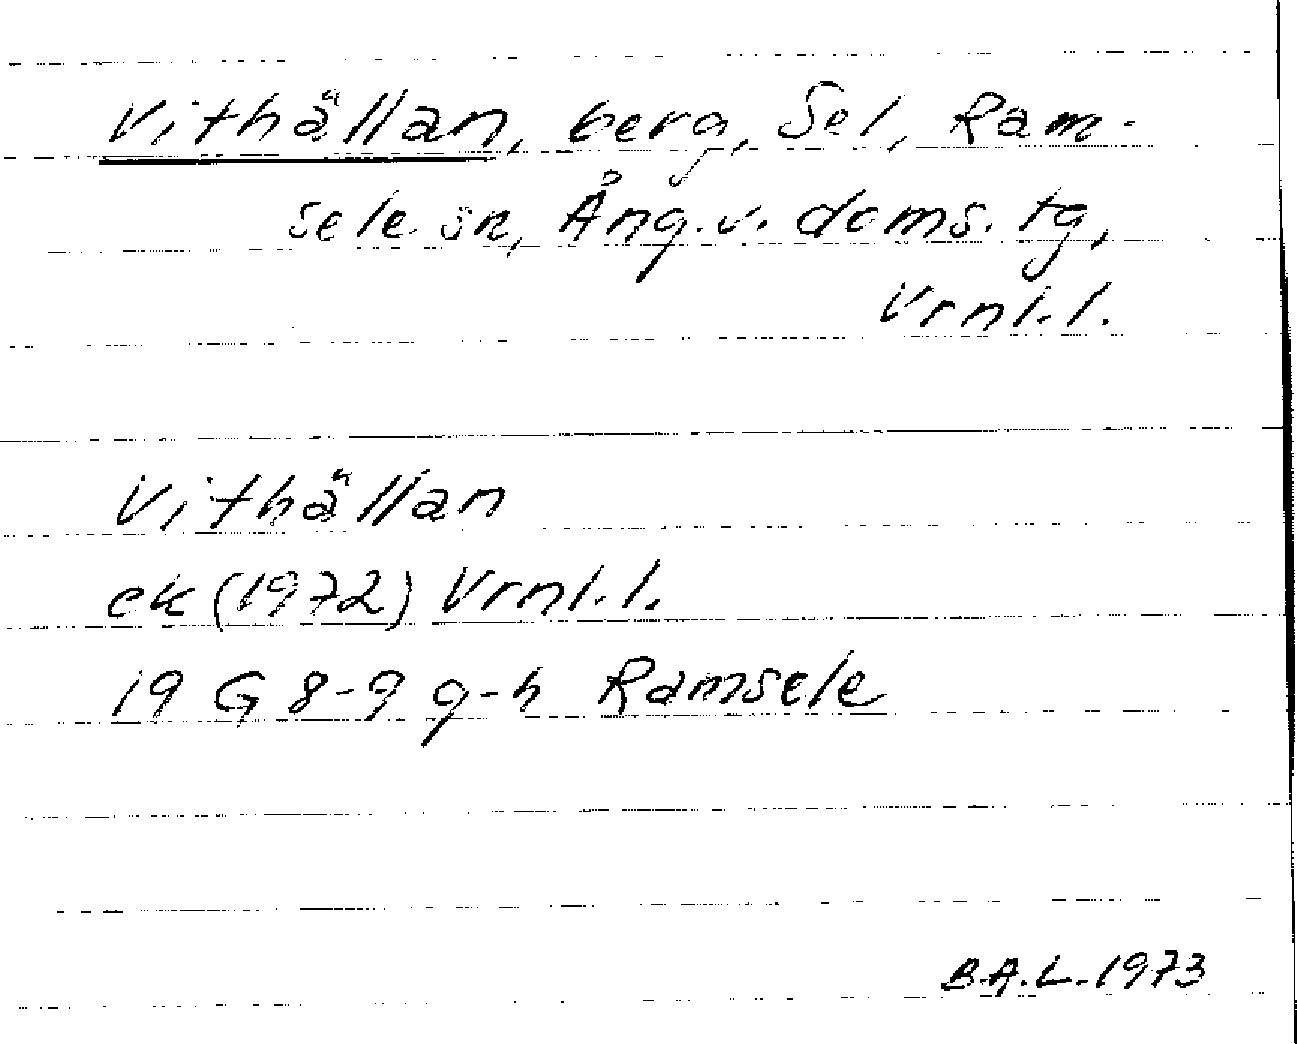 Vithällan, berg, Sel, Ram-
sele sn, Ång.v. doms. tg,
Vrnl.l.
Vithällan
ek (1972) Vrnl.l.
19 G 8-9 g-h Ramsele
B.A.L. 1973